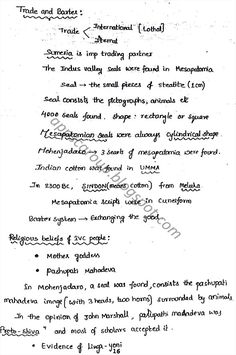 Trade and Barter:
Trade International [Lothal]
Internal
Sumeria is imp trading partner
The Indus valley seals were found in Mesopotamia
Seal → the small pieces of steatite (1cm)
Seal consists the pictographs, animals etc
4000 Seals found. Shape: rectangle or square
Mesopotamian seals were always cylindrical shape.
Mohenjadaro → 3 seals of mesopotamia were found.
Indian cotton was found in UMMA
In 2300BC, SINDON (means cotton) from Meluha
Mesopotamia scripts were in Cuneiform
Barter System → Exchanging the good
Religious beliefs of IVC people:
• Mother goddess
• Pashupati mahadeva
In Mohenjadaro, a seal was found, consists the pashupati
mahadeva image (with 3 heads, two horns) surrounded by animals
In the opinion of John Marshall, pashupati mahadeva was
"Proto-Shiva" and most of scholars accepted it.
• Evidence of linga-yoni
16